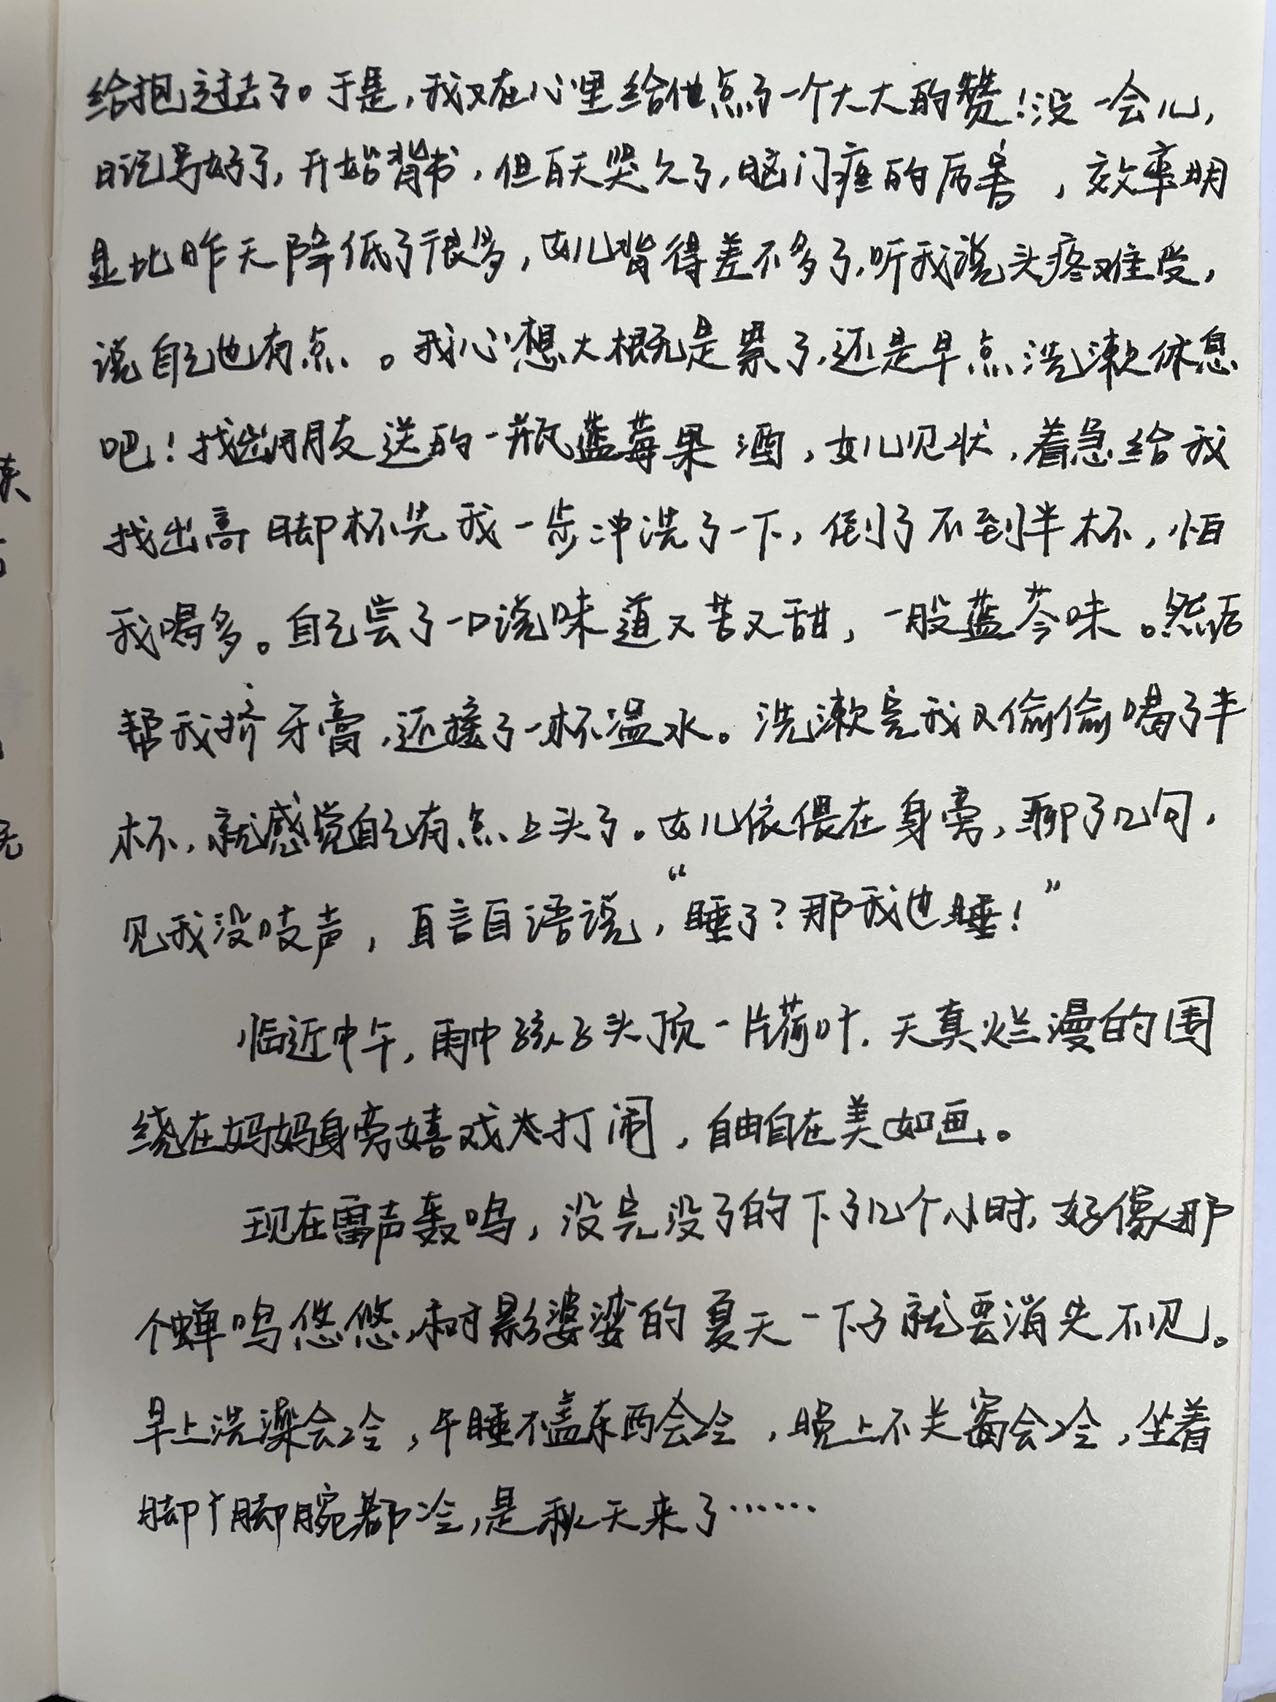 给抱过去了。于是,我又在心里给他点了一个大大的赞!没一会儿,
日记写好了,开始背书,但白天哭久了,脑门疼的厉害,效率明
显比昨天降低了很多,女儿背得差不多了,听我说头疼难受,
说自己也有点。我心想大概无是累了,还是早点洗漱休息
吧!找出朋友送的一瓶蓝莓果酒,女儿见状,着急给我
找出高脚杯先我一步冲洗了一下,倒了不到半杯,怕
我喝多。自己尝了一口说味道又苦又甜,一股蓝芩味。然后
帮我挤牙膏,还接了一杯温水。洗漱完我又偷偷喝了半
杯,就感觉自己有点上头了。女儿依偎在身旁,聊了几句,
见我没吱声,自言自语说,“睡了?那我也睡!”
临近中午,雨中孩子头顶一片荷叶,天真烂漫的围
绕在妈妈身旁嬉戏打闹,自由自在美如画。
现在雷声轰鸣,没完没了的下了几个小时,好像那
个蝉鸣悠悠,树影婆娑的夏天一下子就要消失不见。
早上洗澡会冷,午睡不盖东西会冷,晚上不关窗会冷,坐着
脚丫脚腕都冷,是秋天来了……